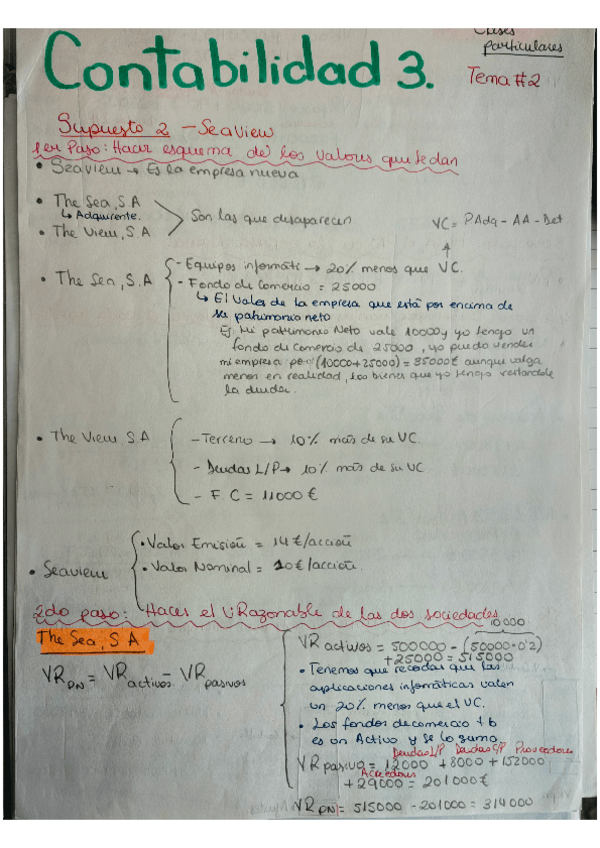 Clases
particulares
Contabilidad 3.
Tema #2
Supuesto 2 - Seaview
1er Paso: Hacer esquema de los valores que se dan
• Seaview → Es la empresa nueva
• The Sea, S.A
↳ Adquirente.
• The View, S.A
Son las que desaparecen
VC = PAdq - AA - Det
• The Sea, S.A
- Equipos informáti → 20% menos que VC.
- Fondo de Comercio = 25000
↳ El valor de la empresa que está por encima de
su patrimonio neto
Ej: Mi patrimonio Neto vale 10000 y yo tengo un
fondo de comercio de 25000, yo puedo vender
mi empresa por (10000+25000) = 35000€ aunque valga
menos en realidad, los bienes que yo tengo restandole
la deuda.
• The View S.A
- Terreno → 10% más de su VC.
- Deudas L/P → 10% más de su VC
- F C = 11000 €
• Seaview
• Valor Emisión = 14€/acción
• Valor Nominal = 10€/acción.
2do paso: Hacer el V.Razonable de las dos sociedades
The Sea, S A
VR PN = VR activos - VR pasivos
10000
VR activos = 500000 - (50000·0'2)
+25000 = 515000
• Tenemos que recordar que las
aplicaciones informáticas valen
un 20% menos que el VC.
• Los fondos de comercio tb
es un Activo y se lo sumo.
Deudas L/P Deudas C/P Proveedores
VR pasivo = 12000 + 8000 + 152000
Acreedores
+ 29000 = 201000€
VR PN = 515000 - 201000 = 314000